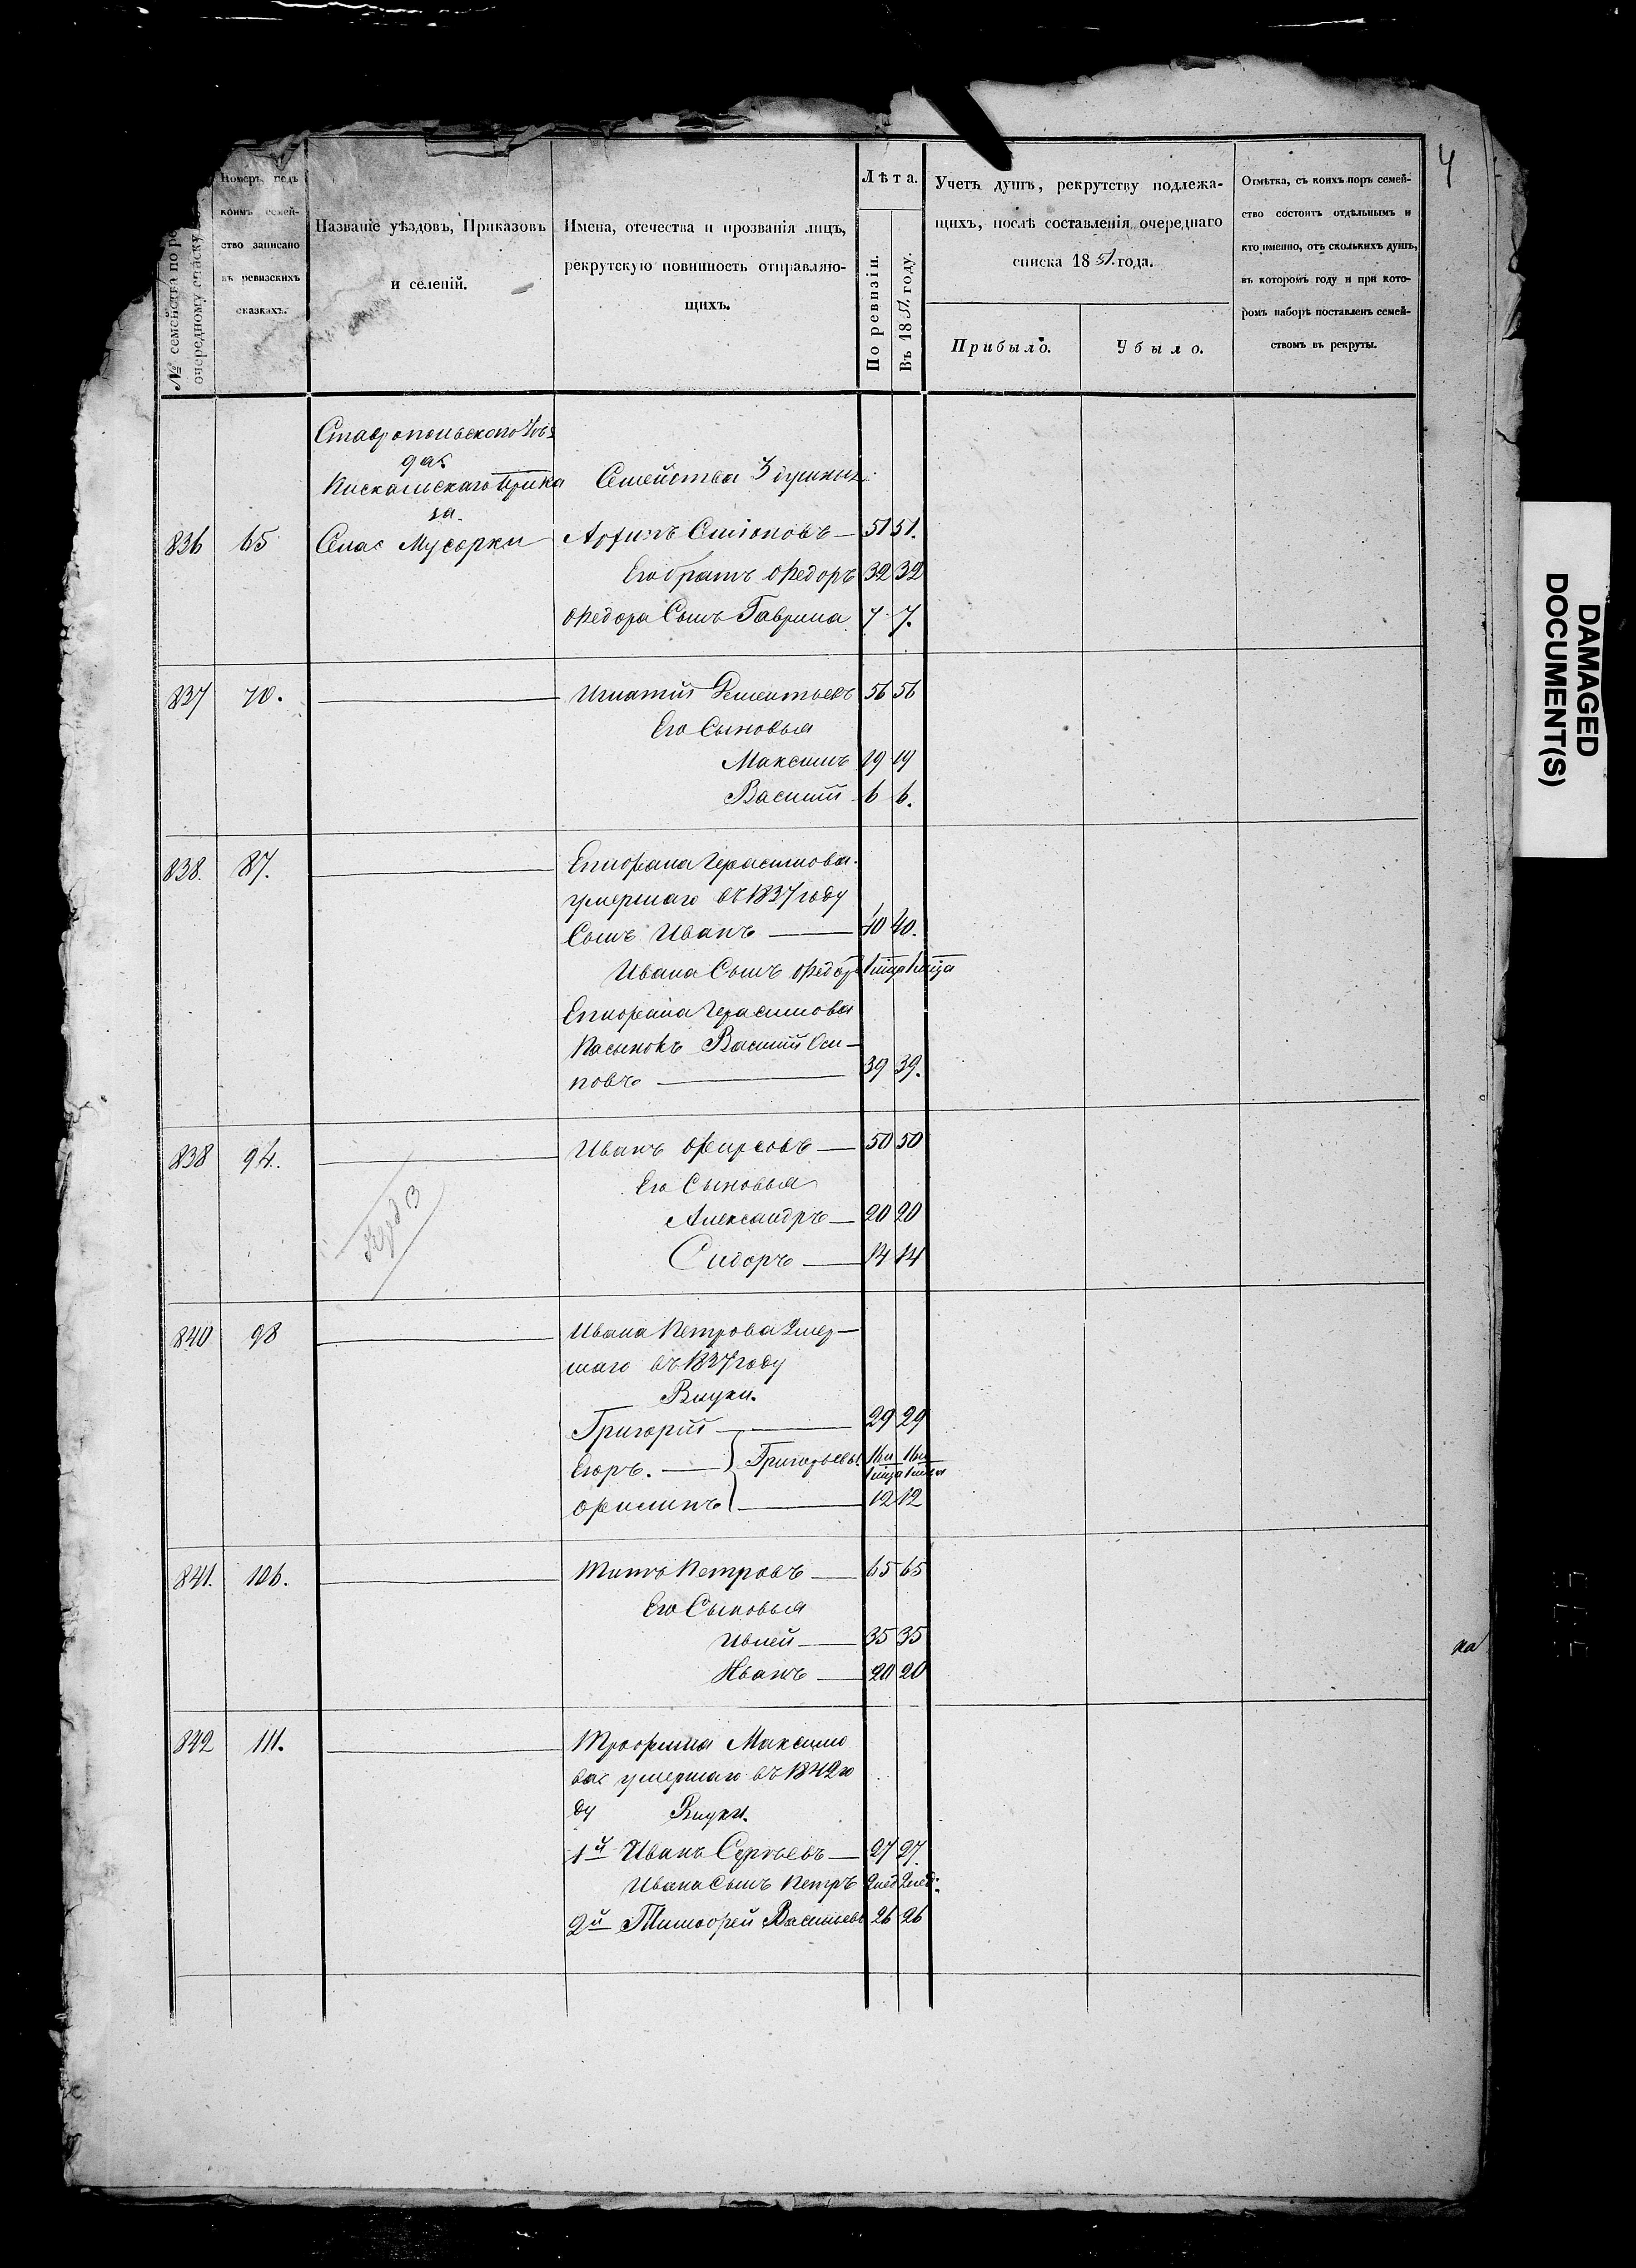 4
№ семейства по ре
очередному списку
Номеръ, подъ
коимъ семей-
ство записано
въ ревизскихъ
сказкахъ.
Названіе уѣздовъ, Приказовъ
и селеній.
Имена, отечества и прозванія лицъ,
рекрутскую повинность отправляю-
щихъ.
Лѣта.
По ревизіи.
Въ 1851 году.
Учетъ душъ, рекрутству подлежа-
щихъ, послѣ составленія очереднаго
списка 1851 года.
Прибыло.
Убыло.
Отмѣтка, съ коихъ поръ семей-
ство состоитъ отдѣльнымъ и
кто именно, отъ сколькихъ душъ,
въ которомъ году и при кото-
ромъ наборѣ поставленъ семей-
ствомъ въ рекруты.
Ставропольского Уѣз
да
Пискальскаго Прика
за.
Семейства 3 душныя
836 65 Села Мусорки Архипъ Симоновъ 51 51.
Его братъ Федоръ 32 32
Федора Сынъ Гаврила 7 7.
837 70. Игнатій Дементьевъ 56 56
Его Сыновья
Максимъ 19 19
Василій 6 6.
838. 87. Епифана Герасимова
умершаго въ 1837 году
Сынъ Иванъ 40 40.
Ивана Сынъ Федоръ 1 мца 1 мца
Епифана Герасимова
Пасынокъ Василій Оси-
повъ 39 39.
838 94. Иванъ Фирсовъ 50 50
Его Сыновья
Александръ 20 20
Сидоръ 14 14
840 98 Ивана Петрова Умер-
шаго въ 1837 году
Внуки.
Григорій 29 29
Егоръ. Григорьевы 16 и 16 и
1 мца 1 мца
Филипъ 12 12
841. 106. Титъ Петровъ 65 65
Его Сыновья
Ивлей 35 35
Иванъ 20 20
842 111. Трофима Максимо
ва умершаго въ 1842 го
ду Внуки.
1й Иванъ Сергѣевъ 27 27.
Ивана Сынъ Петръ 2 нед 2 нед.
2й Тимофей Васильевъ 26 26
на
DAMAGED
DOCUMENT(S)